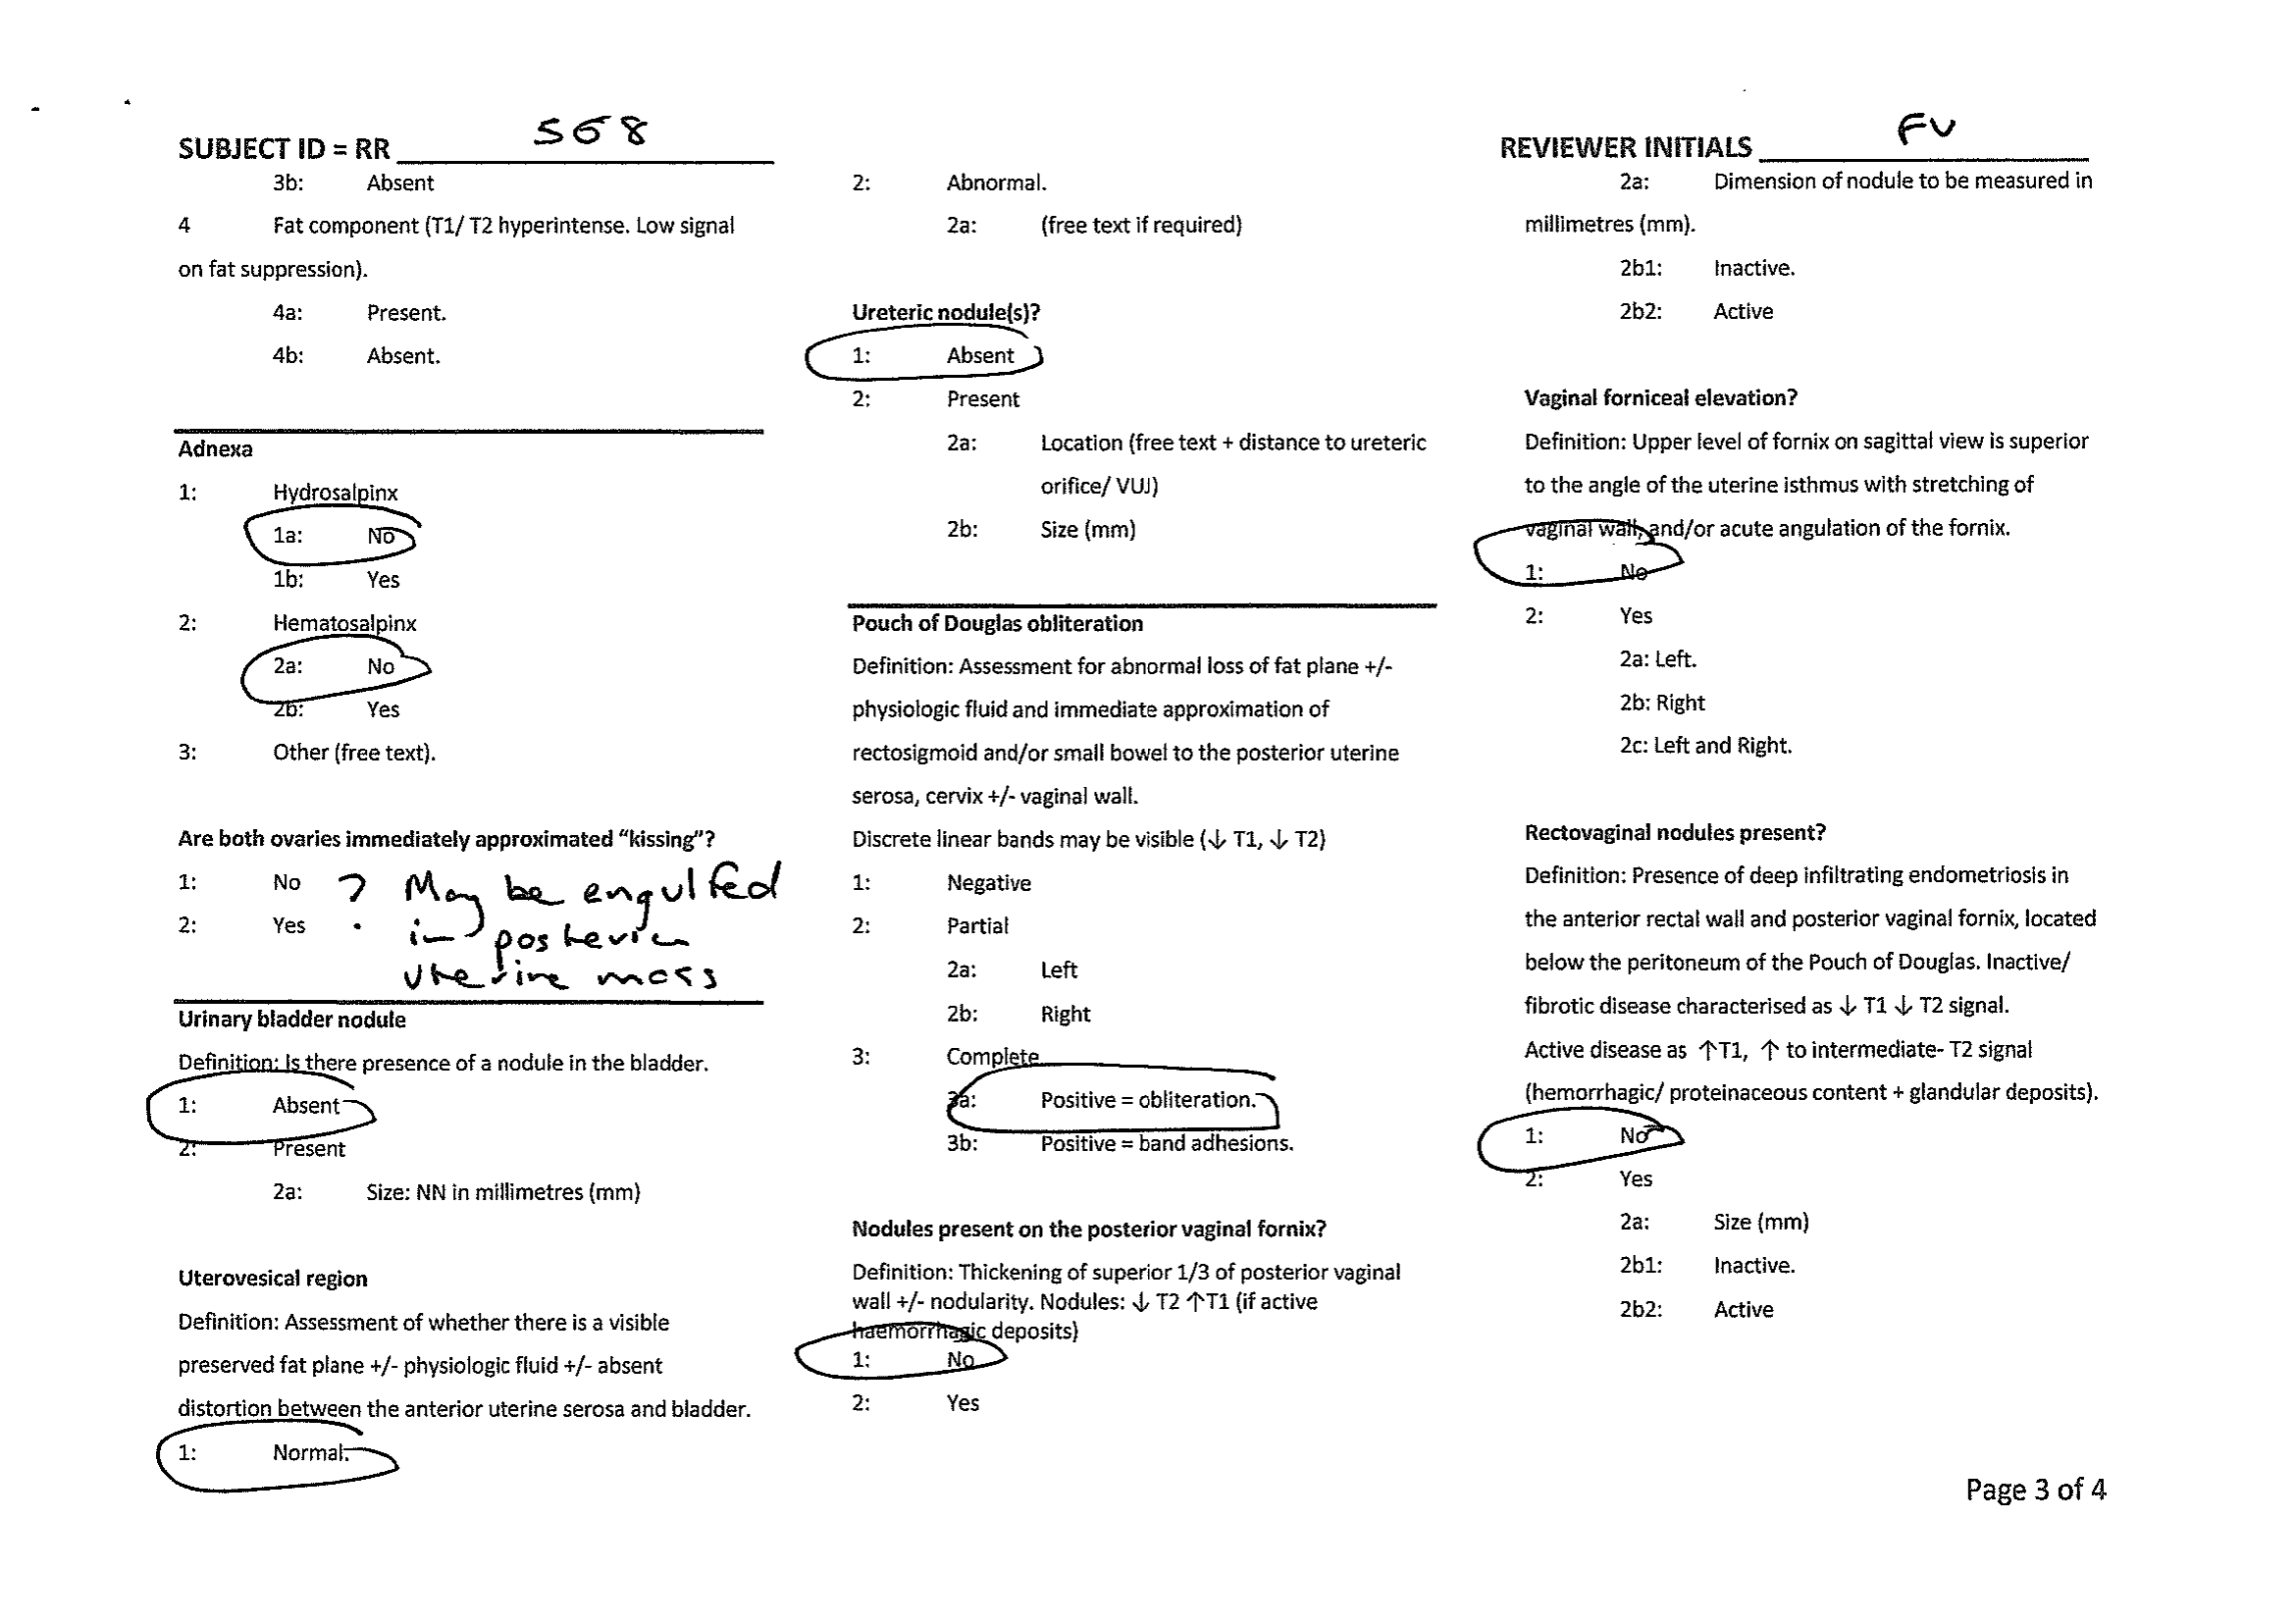 SUBJECT ID = RR 568
REVIEWER INITIALS FV
3b: Absent
4 Fat component (T1/ T2 hyperintense. Low signal
on fat suppression).
4a: Present.
4b: Absent.
Adnexa
1: Hydrosalpinx
1a: No
1b: Yes
2: Hematosalpinx
2a: No
2b: Yes
3: Other (free text).
Are both ovaries immediately approximated “kissing”?
1: No
2: Yes
? May be engulfed
in posterior
uterine mass
Urinary bladder nodule
Definition: Is there presence of a nodule in the bladder.
1: Absent
2: Present
2a: Size: NN in millimetres (mm)
Uterovesical region
Definition: Assessment of whether there is a visible
preserved fat plane +/- physiologic fluid +/- absent
distortion between the anterior uterine serosa and bladder.
1: Normal.
2: Abnormal.
2a: (free text if required)
Ureteric nodule(s)?
1: Absent
2: Present
2a: Location (free text + distance to ureteric
orifice/ VUJ)
2b: Size (mm)
Pouch of Douglas obliteration
Definition: Assessment for abnormal loss of fat plane +/-
physiologic fluid and immediate approximation of
rectosigmoid and/or small bowel to the posterior uterine
serosa, cervix +/- vaginal wall.
Discrete linear bands may be visible (↓ T1, ↓ T2)
1: Negative
2: Partial
2a: Left
2b: Right
3: Complete
3a: Positive = obliteration.
3b: Positive = band adhesions.
Nodules present on the posterior vaginal fornix?
Definition: Thickening of superior 1/3 of posterior vaginal
wall +/- nodularity. Nodules: ↓ T2 ↑T1 (if active
haemorrhagic deposits)
1: No
2: Yes
2a: Dimension of nodule to be measured in
millimetres (mm).
2b1: Inactive.
2b2: Active
Vaginal forniceal elevation?
Definition: Upper level of fornix on sagittal view is superior
to the angle of the uterine isthmus with stretching of
vaginal wall, and/or acute angulation of the fornix.
1: No
2: Yes
2a: Left.
2b: Right
2c: Left and Right.
Rectovaginal nodules present?
Definition: Presence of deep infiltrating endometriosis in
the anterior rectal wall and posterior vaginal fornix, located
below the peritoneum of the Pouch of Douglas. Inactive/
fibrotic disease characterised as ↓ T1 ↓ T2 signal.
Active disease as ↑T1, ↑ to intermediate- T2 signal
(hemorrhagic/ proteinaceous content + glandular deposits).
1: No
2: Yes
2a: Size (mm)
2b1: Inactive.
2b2: Active
Page 3 of 4